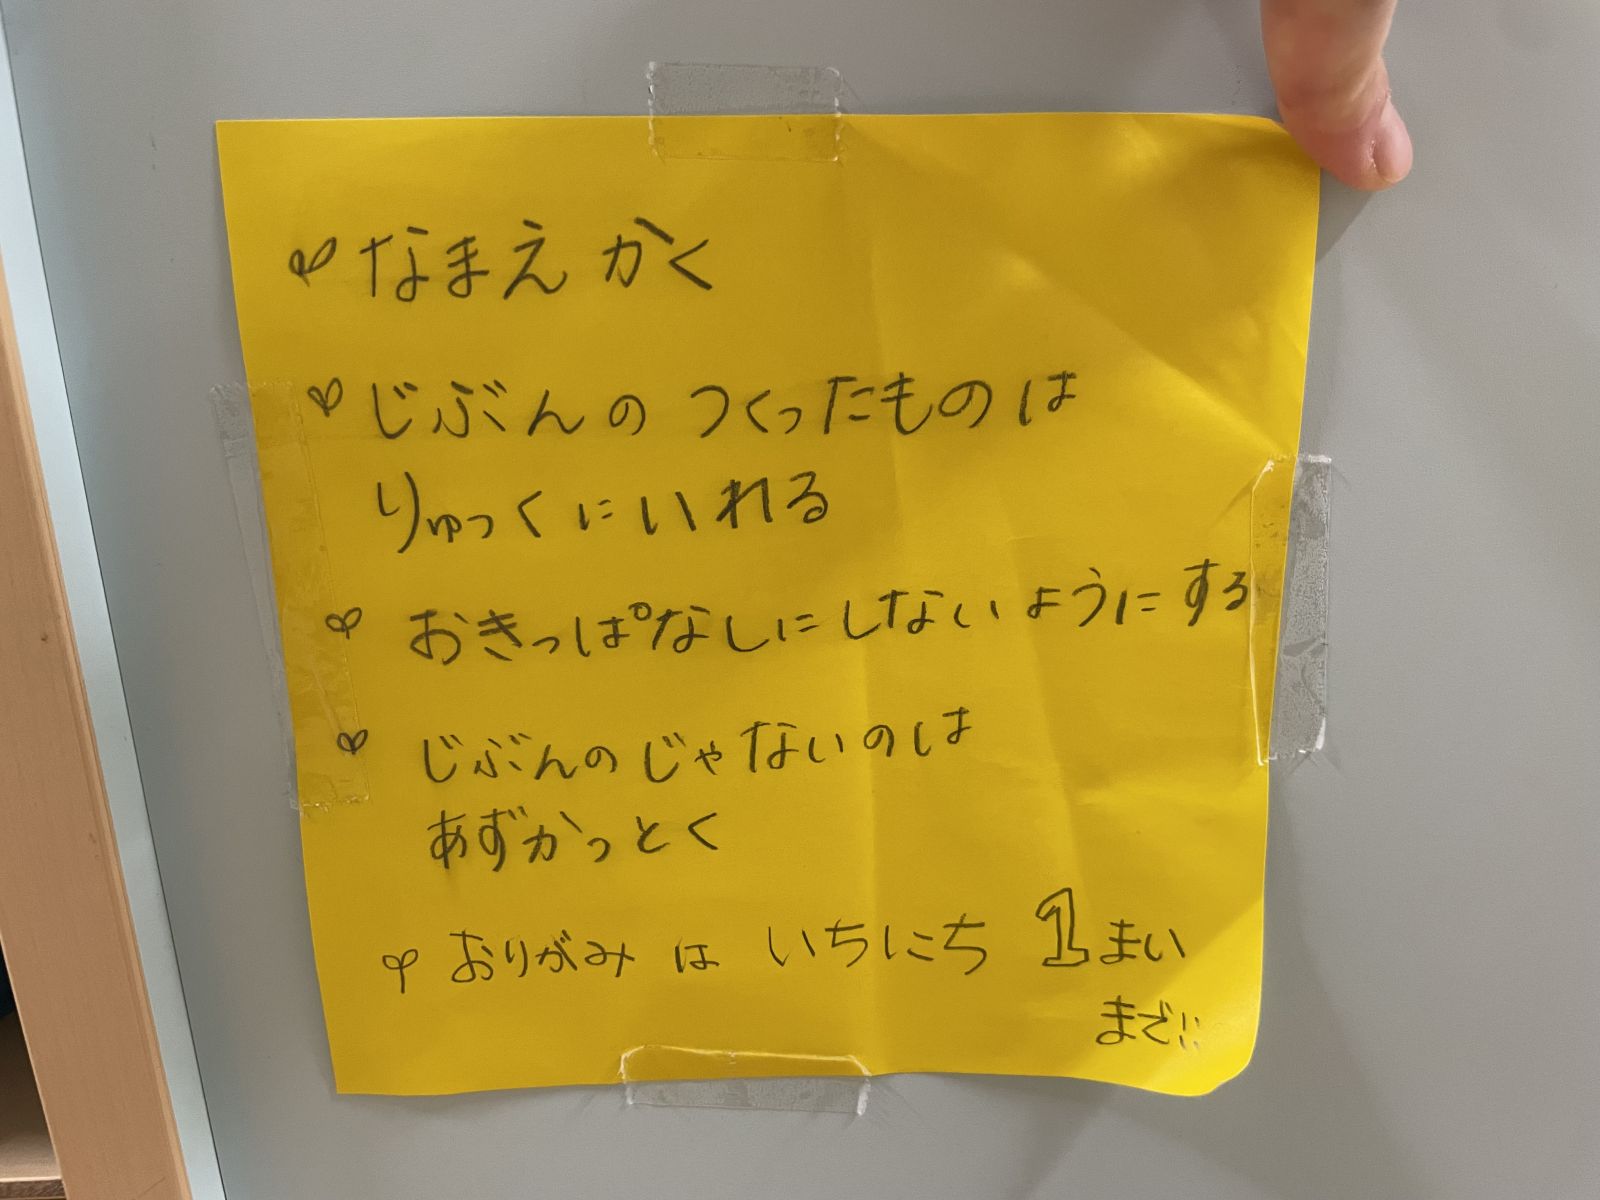 なまえ かく
じぶんの つくったものは
りゅっくにいれる
おきっぱなしにしないようにする
じぶんのじゃないのは
あずかっとく
おりがみ は いちにち 1まい
まで!!